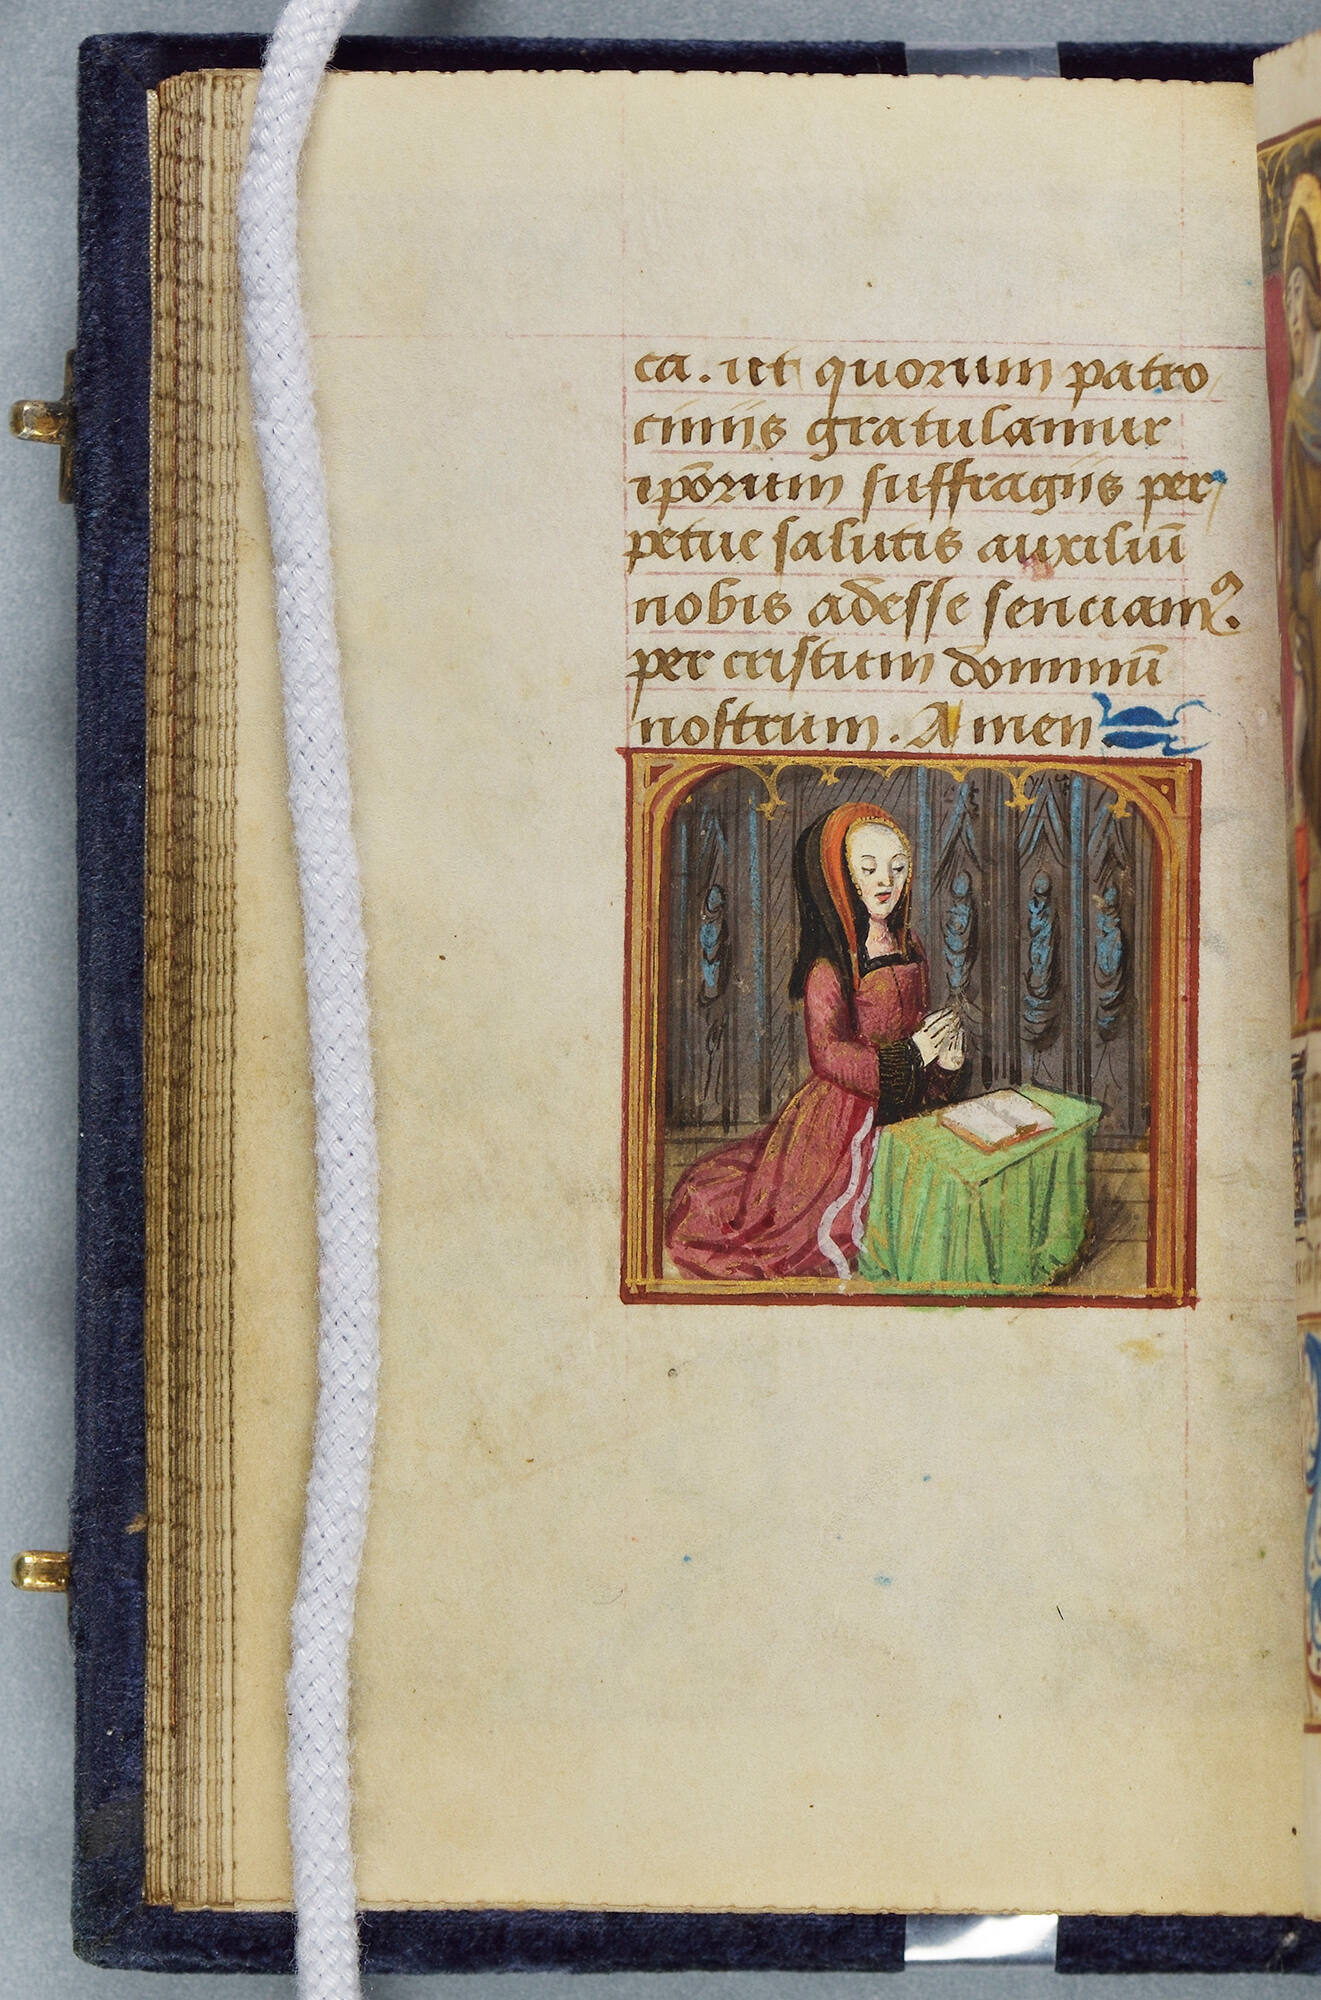 ca. ut quorum patro
ciniis gratulamur
ip̄orum suffragiis per
petue salutis auxiliū
nobis adesse senciamꝰ.
per cristum dominū
nostrum. Amen.